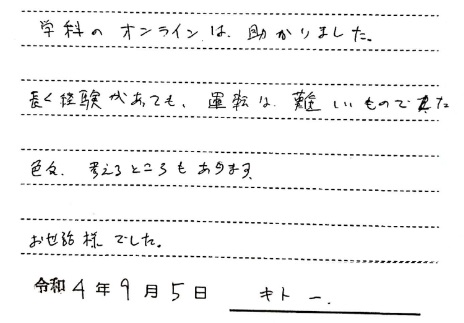 学科のオンラインは、助かりました。
長く経験があても、運転は、難しいもので また
色々、考えるところもあります
お世話様でした。
令和4年9月5日 キトー.